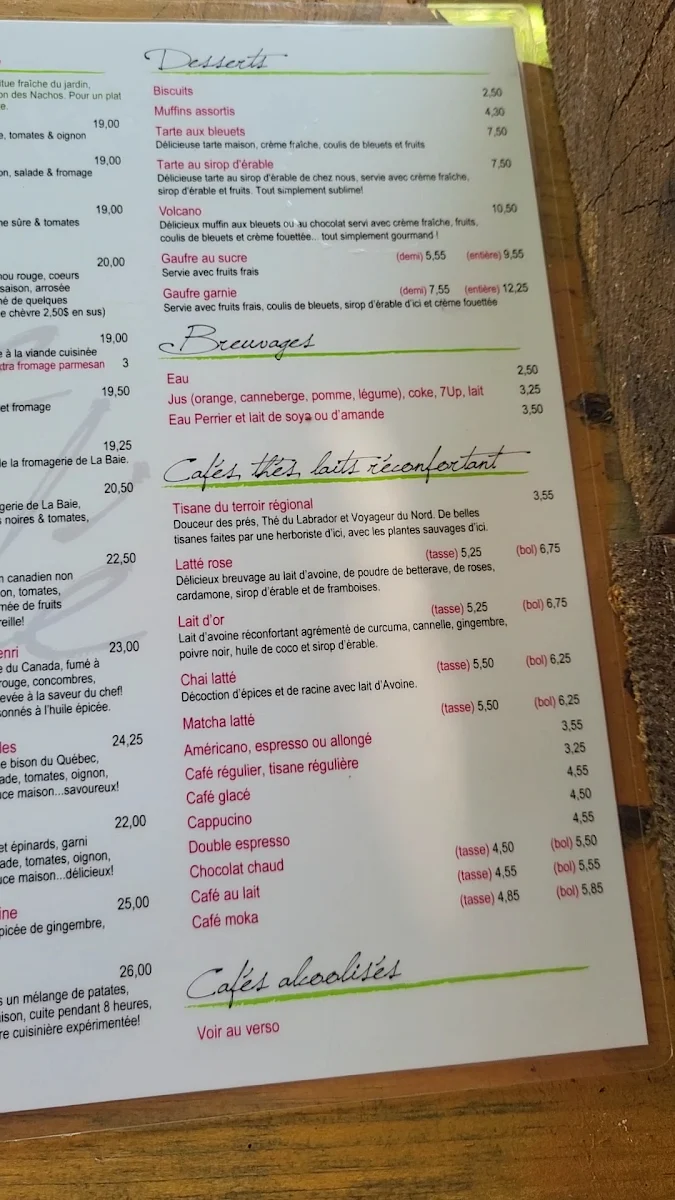 itue fraîche du jardin,
on des Nachos. Pour un plat
e.
19,00
e, tomates & oignon
19,00
on, salade & fromage
19,00
ne sûre & tomates
20,00
nou rouge, coeurs
saison, arrosée
né de quelques
e chèvre 2,50$ en sus)
19,00
e à la viande cuisinée
xtra fromage parmesan 3
19,50
et fromage
19,25
de la fromagerie de La Baie.
20,50
gerie de La Baie,
s noires & tomates,
22,50
n canadien non
on, tomates,
mée de fruits
reille!
enri 23,00
e du Canada, fumé à
rouge, concombres,
evée à la saveur du chef!
sonnés à l'huile épicée.
les 24,25
e bison du Québec,
ade, tomates, oignon,
uce maison...savoureux!
22,00
et épinards, garni
ade, tomates, oignon,
uce maison...délicieux!
ine 25,00
picée de gingembre,
26,00
s un mélange de patates,
ison, cuite pendant 8 heures,
re cuisinière expérimentée!
Desserts
Biscuits 2,50
Muffins assortis 4,30
Tarte aux bleuets 7,50
Délicieuse tarte maison, crème fraîche, coulis de bleuets et fruits
Tarte au sirop d'érable 7,50
Délicieuse tarte au sirop d'érable de chez nous, servie avec crème fraîche,
sirop d'érable et fruits. Tout simplement sublime!
Volcano 10,50
Délicieux muffin aux bleuets ou au chocolat servi avec crème fraîche, fruits,
coulis de bleuets et crème fouettée... tout simplement gourmand !
Gaufre au sucre (demi) 5,55 (entière) 9,55
Servie avec fruits frais
Gaufre garnie (demi) 7,55 (entière) 12,25
Servie avec fruits frais, coulis de bleuets, sirop d'érable d'ici et crème fouettée
Breuvages
Eau 2,50
Jus (orange, canneberge, pomme, légume), coke, 7Up, lait 3,25
Eau Perrier et lait de soya ou d'amande 3,50
Cafés, thés, laits réconfortant
Tisane du terroir régional 3,55
Douceur des près, Thé du Labrador et Voyageur du Nord. De belles
tisanes faites par une herboriste d'ici, avec les plantes sauvages d'ici.
Latté rose (tasse) 5,25 (bol) 6,75
Délicieux breuvage au lait d'avoine, de poudre de betterave, de roses,
cardamone, sirop d'érable et de framboises.
Lait d'or (tasse) 5,25 (bol) 6,75
Lait d'avoine réconfortant agrémenté de curcuma, cannelle, gingembre,
poivre noir, huile de coco et sirop d'érable.
Chai latté (tasse) 5,50 (bol) 6,25
Décoction d'épices et de racine avec lait d'Avoine.
Matcha latté (tasse) 5,50 (bol) 6,25
Américano, espresso ou allongé 3,55
Café régulier, tisane régulière 3,25
Café glacé 4,55
Cappucino 4,50
Double espresso 4,55
Chocolat chaud (tasse) 4,50 (bol) 5,50
Café au lait (tasse) 4,55 (bol) 5,55
Café moka (tasse) 4,85 (bol) 5,85
Cafés alcoolisés
Voir au verso